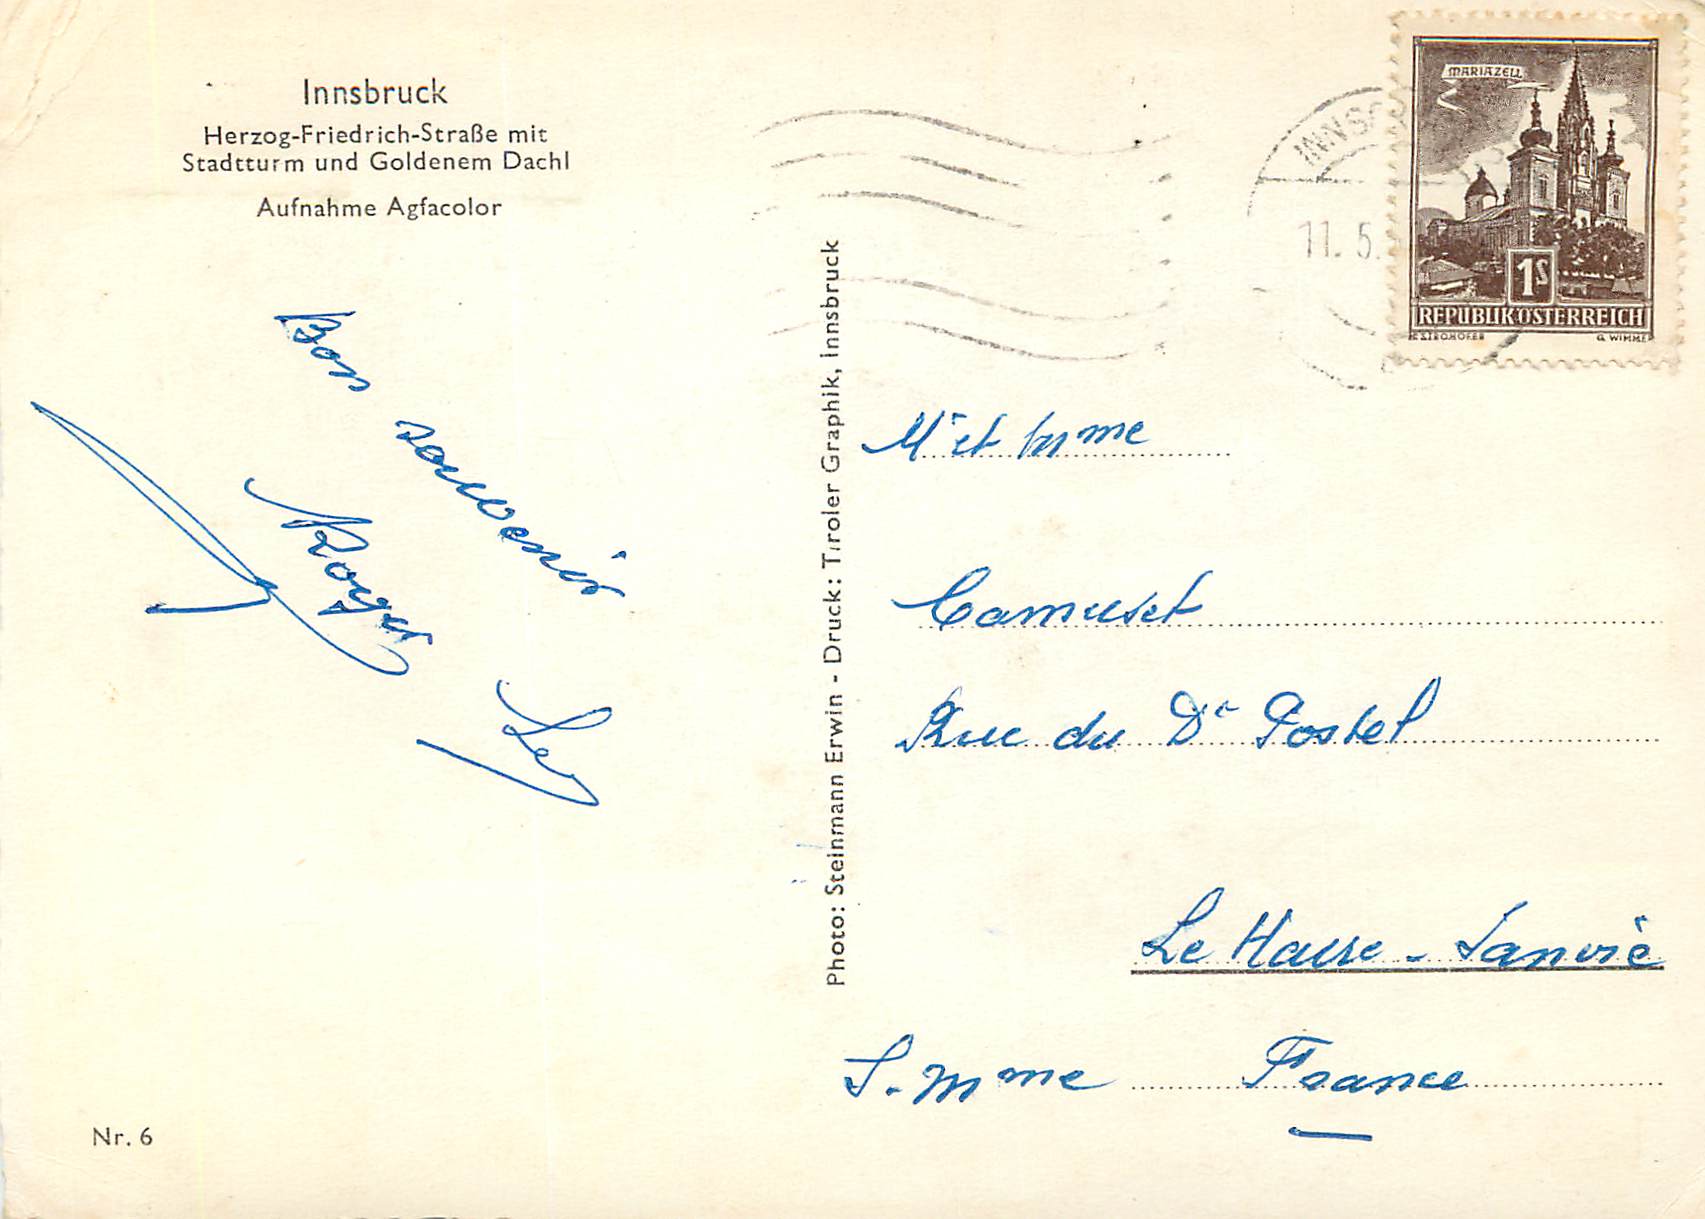 Innsbruck
Herzog-Friedrich-Straße mit
Stadtturm und Goldenem Dachl
Aufnahme Agfacolor
Bon
souvenir
Roger
Photo: Steinmann Erwin - Druck: Tiroler Graphik, Innsbruck
Nr. 6
INNS
11.5.
MARIAZELL
1S
REPUBLIK ÖSTERREICH
G. WIMMER
Mr et Mme
Camuset
Rue du Dr Postel
Le Havre - Sanvic
S. Mme France